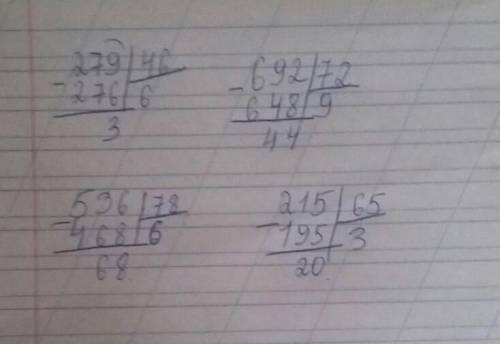 279 46
-276 6
3
692 72
-648 9
44
536 78
-468 6
68
215 65
-195 3
20